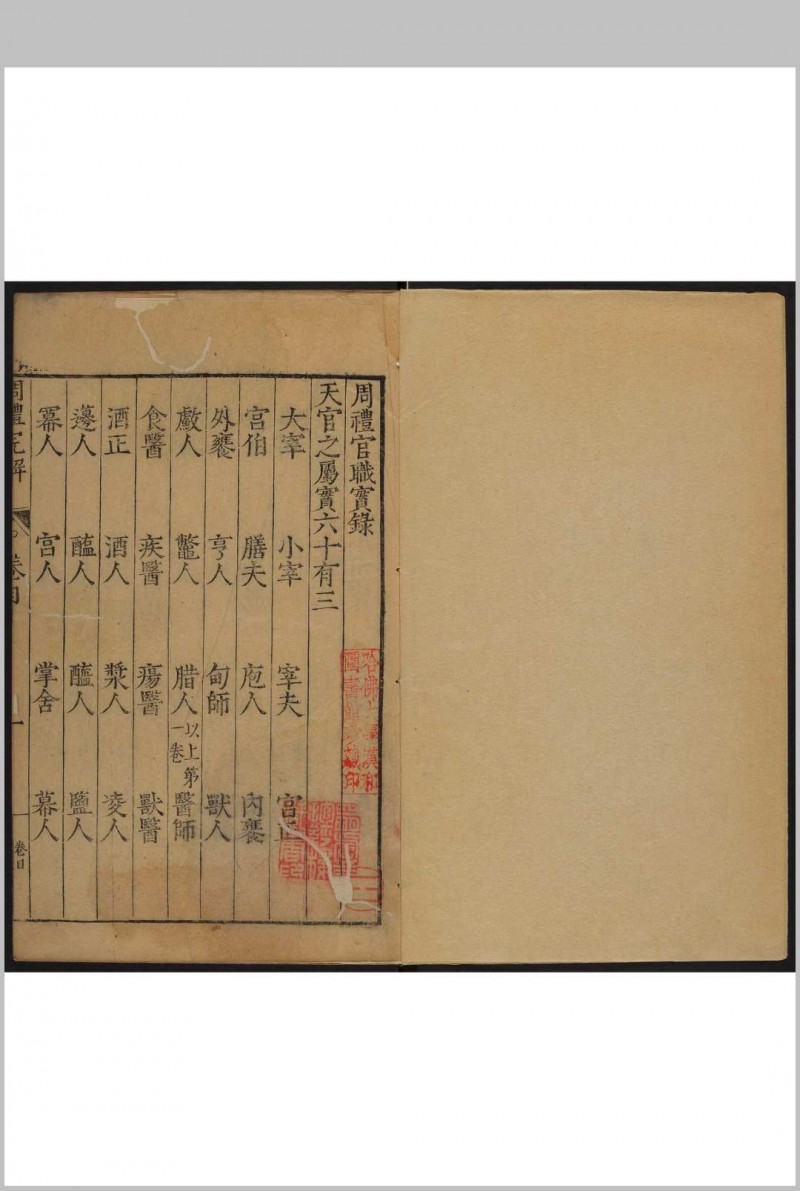 周禮官職實錄
天官之屬實六十有三
大宰 小宰 宰夫 宮正
宮伯 膳夫 庖人 內饔
外饔 亨人 甸師 獸人
䱷人 鼈人 腊人 以上第一卷 醫師
食醫 疾醫 瘍醫 獸醫
酒正 酒人 漿人 凌人
籩人 醢人 醯人 鹽人
冪人 宮人 掌舍 幕人
周禮完解 卷目 一
卷目